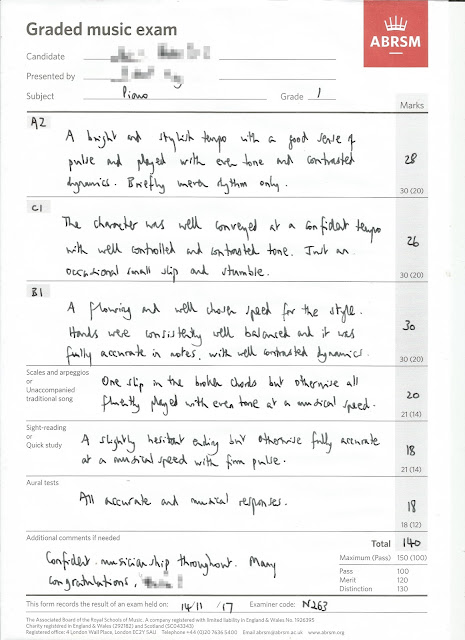 Graded music exam
ABRSM
Candidate
Presented by
Subject Piano Grade 1
Marks
A2
A bright and stylish tempo with a good sense of
pulse and played with even tone and contrasted
dynamics. Briefly uneven rhythm only.
28
30 (20)
C1
The character was well conveyed at a confident tempo
with well controlled and contrasted tone. Just an
occasional small slip and stumble.
26
30 (20)
B1
A flowing and well chosen speed for the style.
Hands were consistently well balanced and it was
fully accurate in notes. with well contrasted dynamics.
30
30 (20)
Scales and arpeggios
or
Unaccompanied
traditional song
One slip in the broken chords but otherwise all
fluently played with even tone at a musical speed.
20
21 (14)
Sight-reading
or
Quick study
A slightly hesitant ending but otherwise fully accurate
at a musical speed with firm pulse.
18
21 (14)
Aural tests
All accurate and musical responses.
18
18 (12)
Additional comments if needed
Confident musicianship throughout. Many
congratulations,
Total 140
Maximum (Pass) 150 (100)
Pass 100
Merit 120
Distinction 130
This form records the result of an exam held on: 14/11/17 Examiner code: N263
The Associated Board of the Royal Schools of Music. A company registered with limited liability in England & Wales No. 1926395
Charity registered in England & Wales (292182) and Scotland (SC043343)
Registered office: 4 London Wall Place, London EC2Y 5AU Telephone +44 (0)20 7636 5400 Email abrsm@abrsm.ac.uk www.abrsm.org